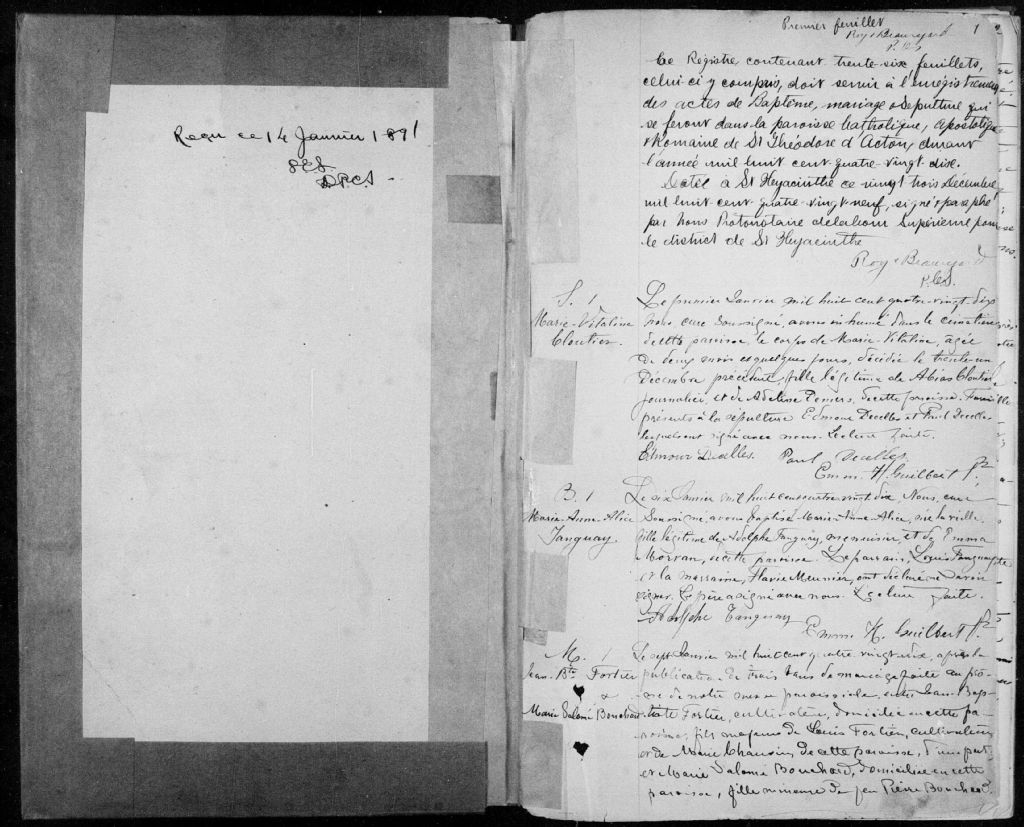 Reçu ce 14 Janvier 1891
Premier feuillet
Roy & Beauregard
P.C.S
1
Ce Registre contenant trente-six feuillets,
celui-ci y compris, doit servir à l'enrégistrement
des actes de Baptême, mariage & Sepulture qui
se feront dans la paroisse Catholique, Apostolique
& Romaine de St Théodore d'Acton, durant
l'année mil huit cent-quatre-vingt dix.
Datée à St Hyacinthe ce vingt trois Décembre
mil huit cent-quatre-vingt-neuf, signé & paraphé
par Nous Protonotaire de la Cour Supérieure pour
le district de St Hyacinthe
Roy & Beauregard
P.C.S.
S. 1
Marie-Vitaline
Cloutier.
Le premier Janvier mil huit cent quatre-vingt-dix
Nous, curé soussigné, avons inhumé dans le cimetière
de cette paroisse, le corps de Marie-Vitaline, âgée
de deux mois et quelques jours, décédée le trente-un
Décembre précédent, fille légitime de Cloutier
journalier, et de Adeline de cette paroisse. Furent
présents à la sépulture Edmour Decelles et Paul Decelles
lesquels ont signé avec nous. Lecture faite.
Edmour Decelles. Paul Decelles
Emm. H. Guilbert Ptre
B. 1
Marie-Anne-Alice
Tanguay.
Le six Janvier mil huit cent quatre vingt dix, Nous, curé
Soussigné, avons baptisé Marie-Anne-Alice, née la veille,
fille légitime de Adolphe Tanguay, menuisier, et de Emma
de cette paroisse. Le parrain, Louis Tanguay
et la marraine, Flavie Meunier, ont déclaré ne savoir
signer. Le père a signé avec nous. Lecture faite.
Adolphe Tanguay
Emm. H. Guilbert Ptre
M. 1
Jean-Bte Fortier
&
Marie Salomé Bouchard
Le sept Janvier mil huit cent quatre vingt dix, après la
publication de trois bans de mariage faite au prô-
ne de notre messe paroissiale, entre Jean-Bap-
tiste Fortier, cultivateur, domicilié en cette pa-
roisse, fils majeur de Louis Fortier, cultivateur,
et de Marie de cette paroisse, d'une part,
et Marie Salomé Bouchard, domiciliée en cette
paroisse, fille mineure de feu Pierre Bouchard